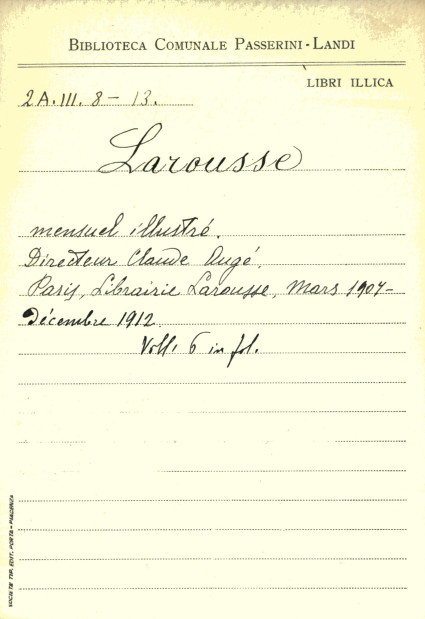 BIBLIOTECA COMUNALE PASSERINI-LANDI
LIBRI ILLICA
2A.III. 8 - 13.
Larousse
mensuel illustré.
Directeur Claude Augé.
Paris, Librairie Larousse, Mars 1907-
Décembre 1912.
Voll. 6 in fol.
SOCIETÀ TIP. EDIT. PORTA - PIACENZA